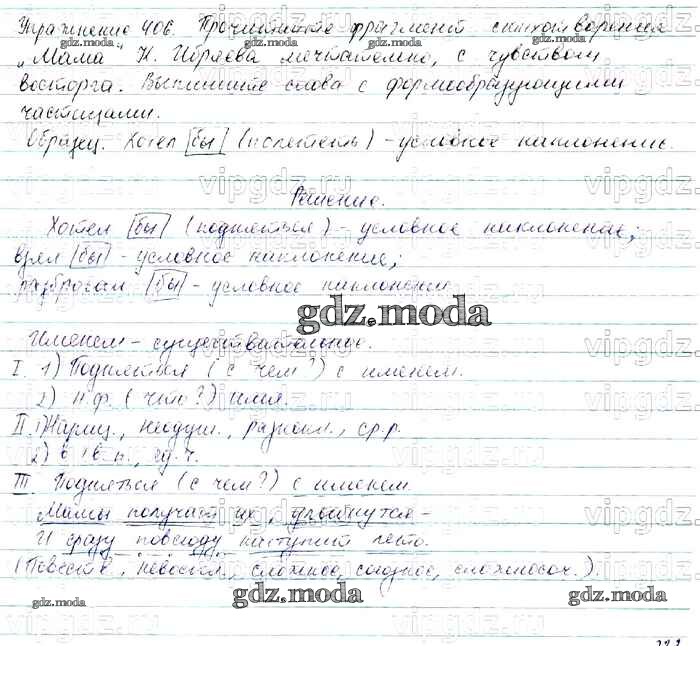 Упражнение 406. Прочитайте фрагмент стихотворения
„Мама" К. Ибряева мечтательно, с чувством
восторга. Выпишите слова с формообразующими
частицами.
Образец. Хотел [бы] (полететь) – условное наклонение.
Решение.
Хотел [бы] (подняться) – условное наклонение;
взял [бы] – условное наклонение;
разбросал [бы] – условное наклонение
gdz.moda
Именем – существительное.
I. 1) Подняться (с чем?) с именем.
2) н.ф. (что?) имя.
II. 1) Нариц., неодуш., разноскл., ср.р.
2) в ед.ч.
III. Подняться (с чем?) с именем.
Мамы получат их, улыбнутся –
И сразу повсюду наступит лето.
(Повеств., невоскл., сложное, союзное, сложносоч.).
gdz.moda gdz.moda gdz.moda
vipgdz.ru